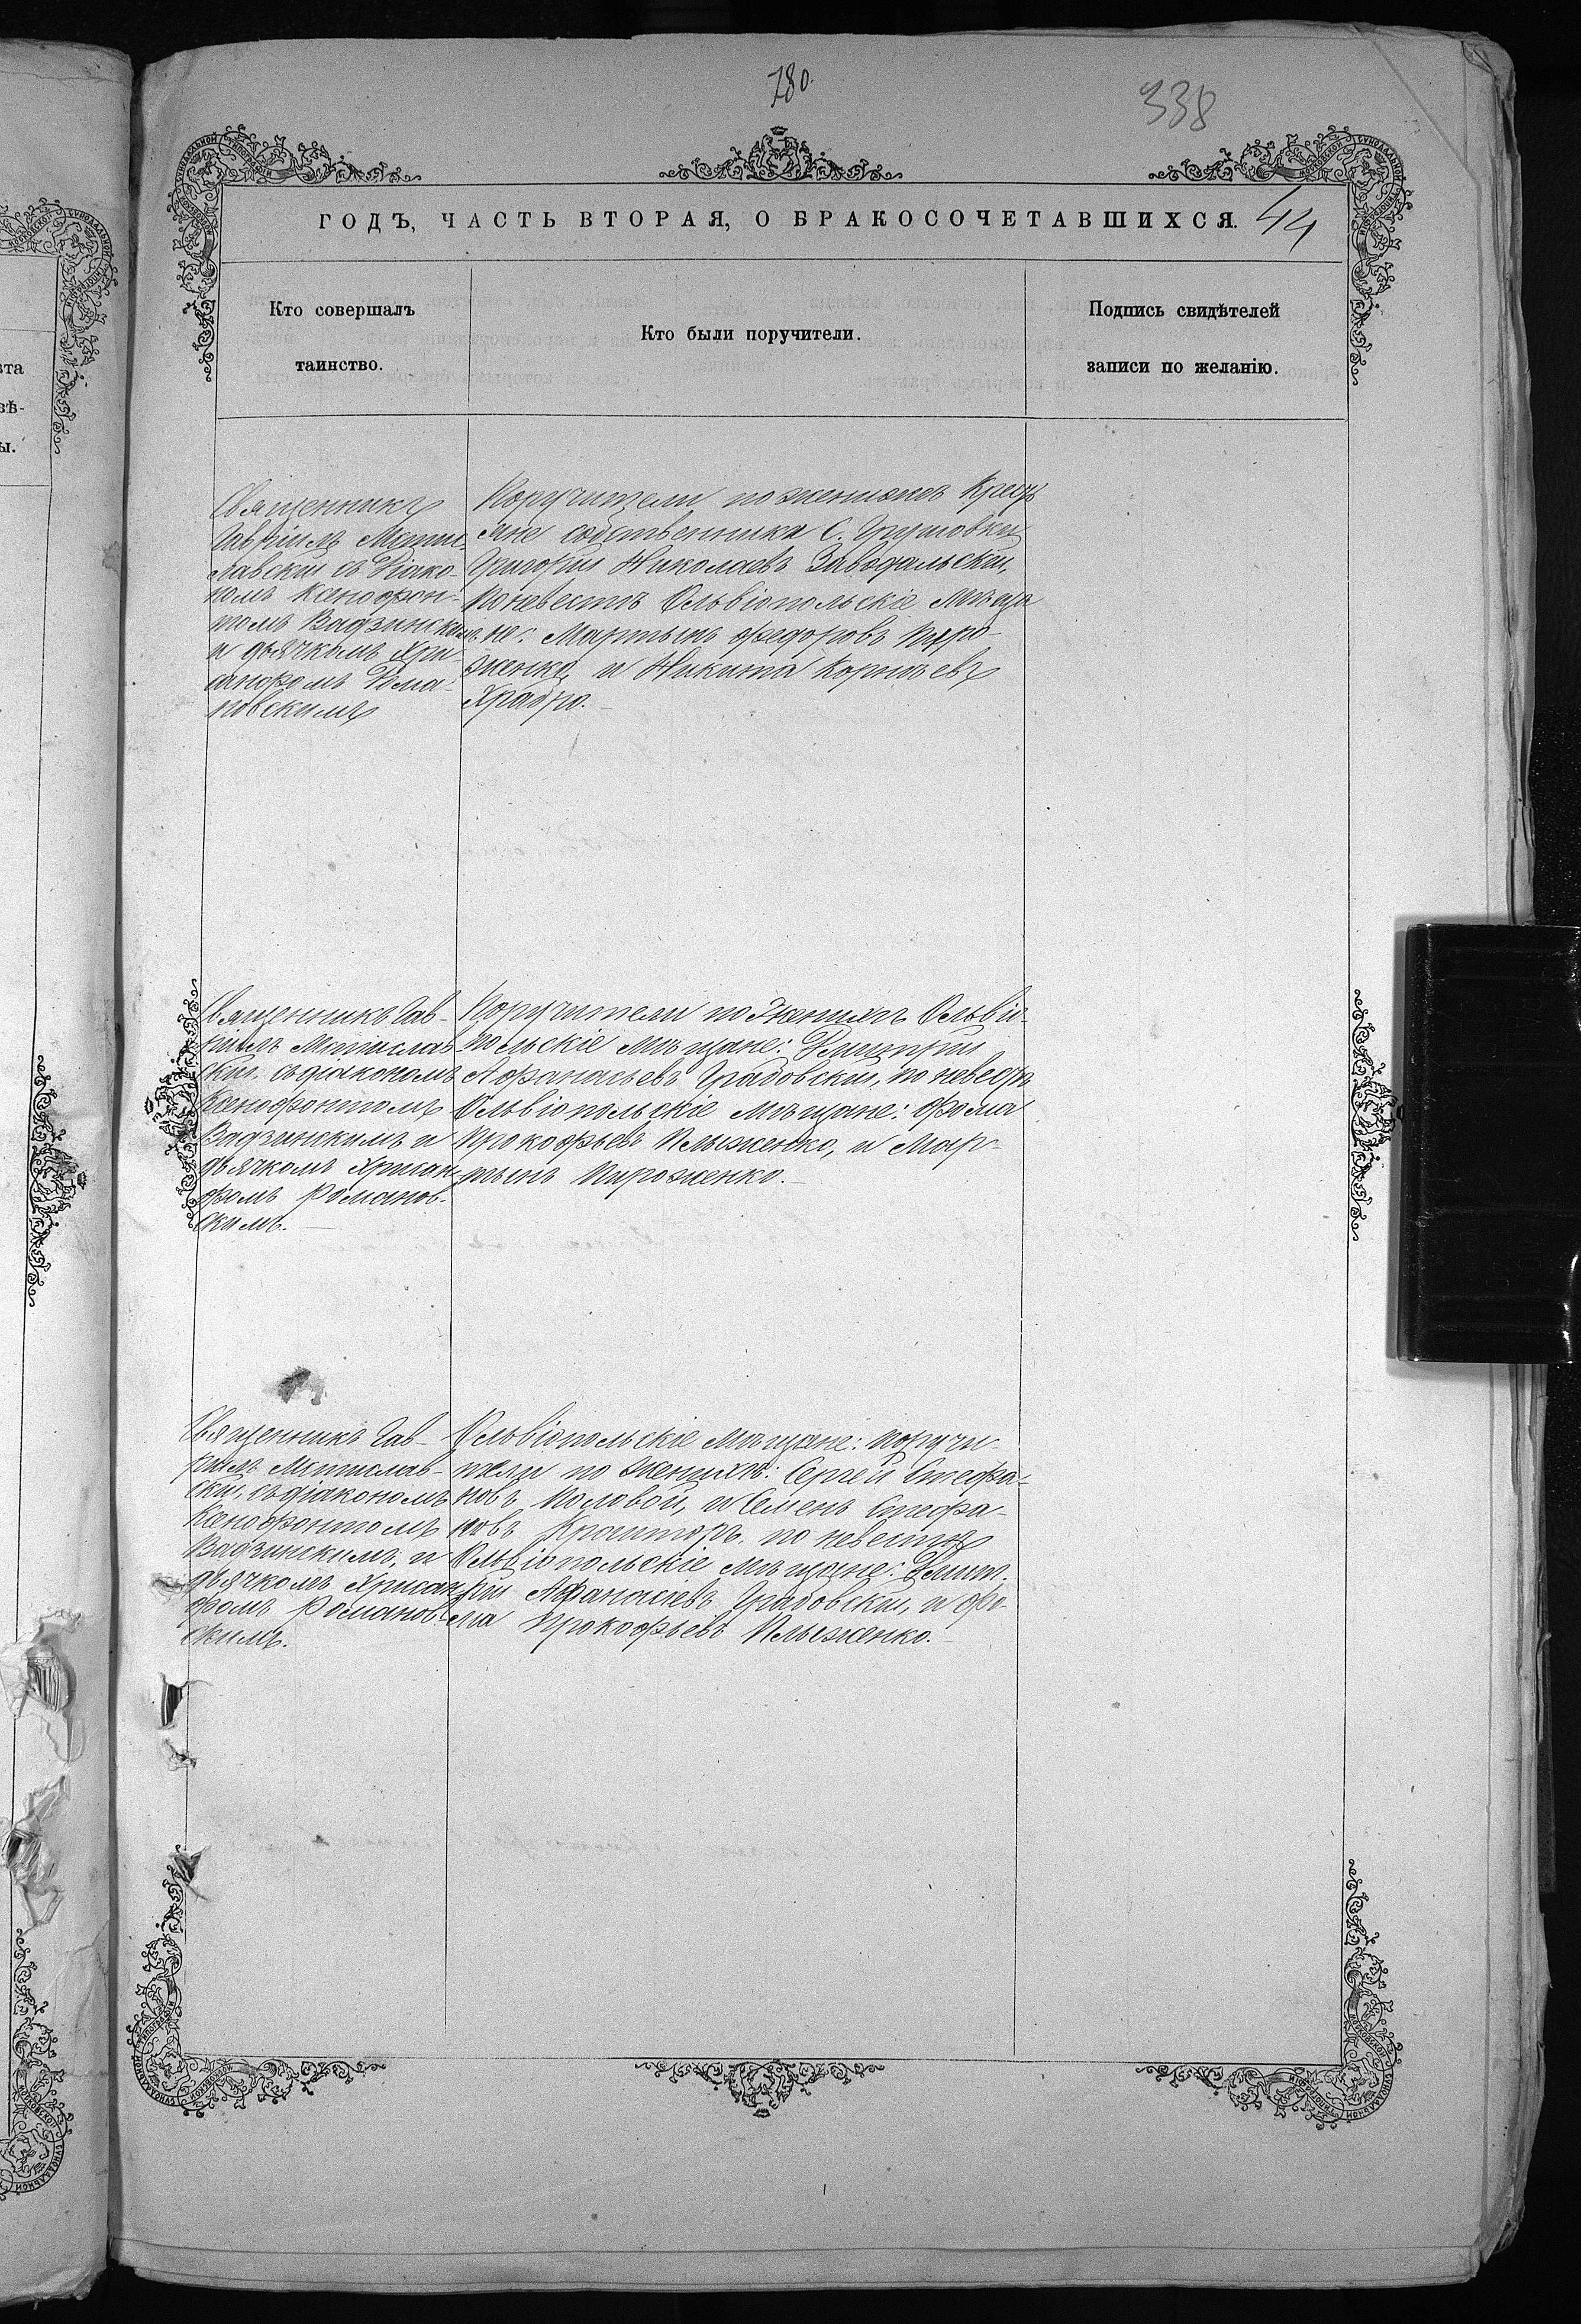 780.
338
ГОДЪ, ЧАСТЬ ВТОРАЯ, О БРАКОСОЧЕТАВШИХСЯ. 44
Кто совершалъ
таинство.
Кто были поручители.
Подпись свидѣтелей
записи по желанію.
Священникъ
Гавріилъ Мсти-
славскій съ Діако-
номъ Ксенофон-
томъ Вадзинскимъ
и дьячкомъ Хри-
санфомъ Рома-
новскимъ
Поручители по женихѣ Крестъ
яне собственники С. Грушовки
Григорій Николаевъ Заводальскій,
по невестѣ Ольвіопольскіе Мѣща
не: Мартынъ Федоровъ Пиро-
женко и Никита Корнѣевъ
Храбро.
Священникъ Гав-
ріилъ Мстислав-
скій, съ діакономъ
Ксенофонтомъ
Вадзинскимъ и
дьячкомъ Хрисан-
фомъ Романов-
скимъ.
Поручители по Женихѣ Ольвіо-
польскіе мѣщане: Дмитрій
Афанасьевъ Грабовскій, по невестѣ
Ольвіопольскіе мѣщане: Фома
Прокофьевъ Ильженко, и Мар-
тынъ Пироженко.
Священникъ Гав-
ріилъ Мстислав-
скій, съ діакономъ
Ксенофонтомъ
Вадзинскимъ, и
дьячкомъ Хрисан
фомъ Романов-
скимъ.
Ольвіопольскіе Мѣщане: поручи-
тели по женихѣ: Сергѣй Стефа-
новъ Половой, и Семенъ Стефа-
новъ по невестѣ
Ольвіопольскіе мѣщане: Дмит-
рій Афанасіевъ Грабовскій, и Фо-
ма Прокофьевъ Ильженко.
вта
вѣ-
ы.